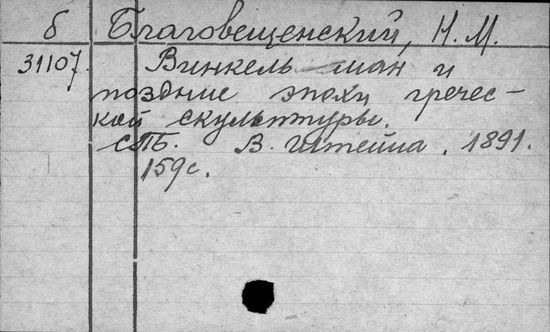 б Благовещенский, Н. М.
31107. Винкельман и
поздние эпохи гречес-
кой скульптуры.
СПБ. В. Штейна. 1891.
159с.